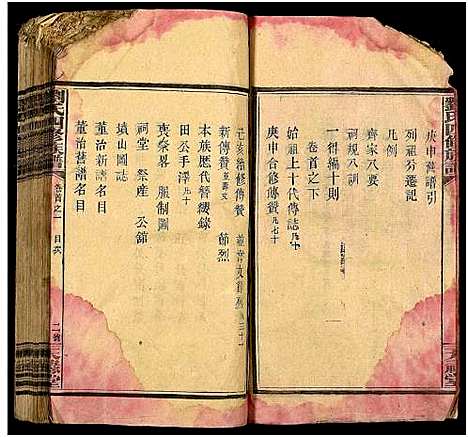 劉氏四修族譜
庚申舊譜引
列祖分遷記
凡例
齊家八要
祠規八訓
一得編十則
卷首之下
始祖上十代傳誌
庚申合修傳贊 凡七十
新傳贊
節烈
本族歷代簪纓錄
田公手澤 凡十
喪祭畧 服制圖
祠堂 祭產 公館
墳山圖誌
董治新譜名目
董治舊譜名目
劉氏四修族譜
卷首之一
目次